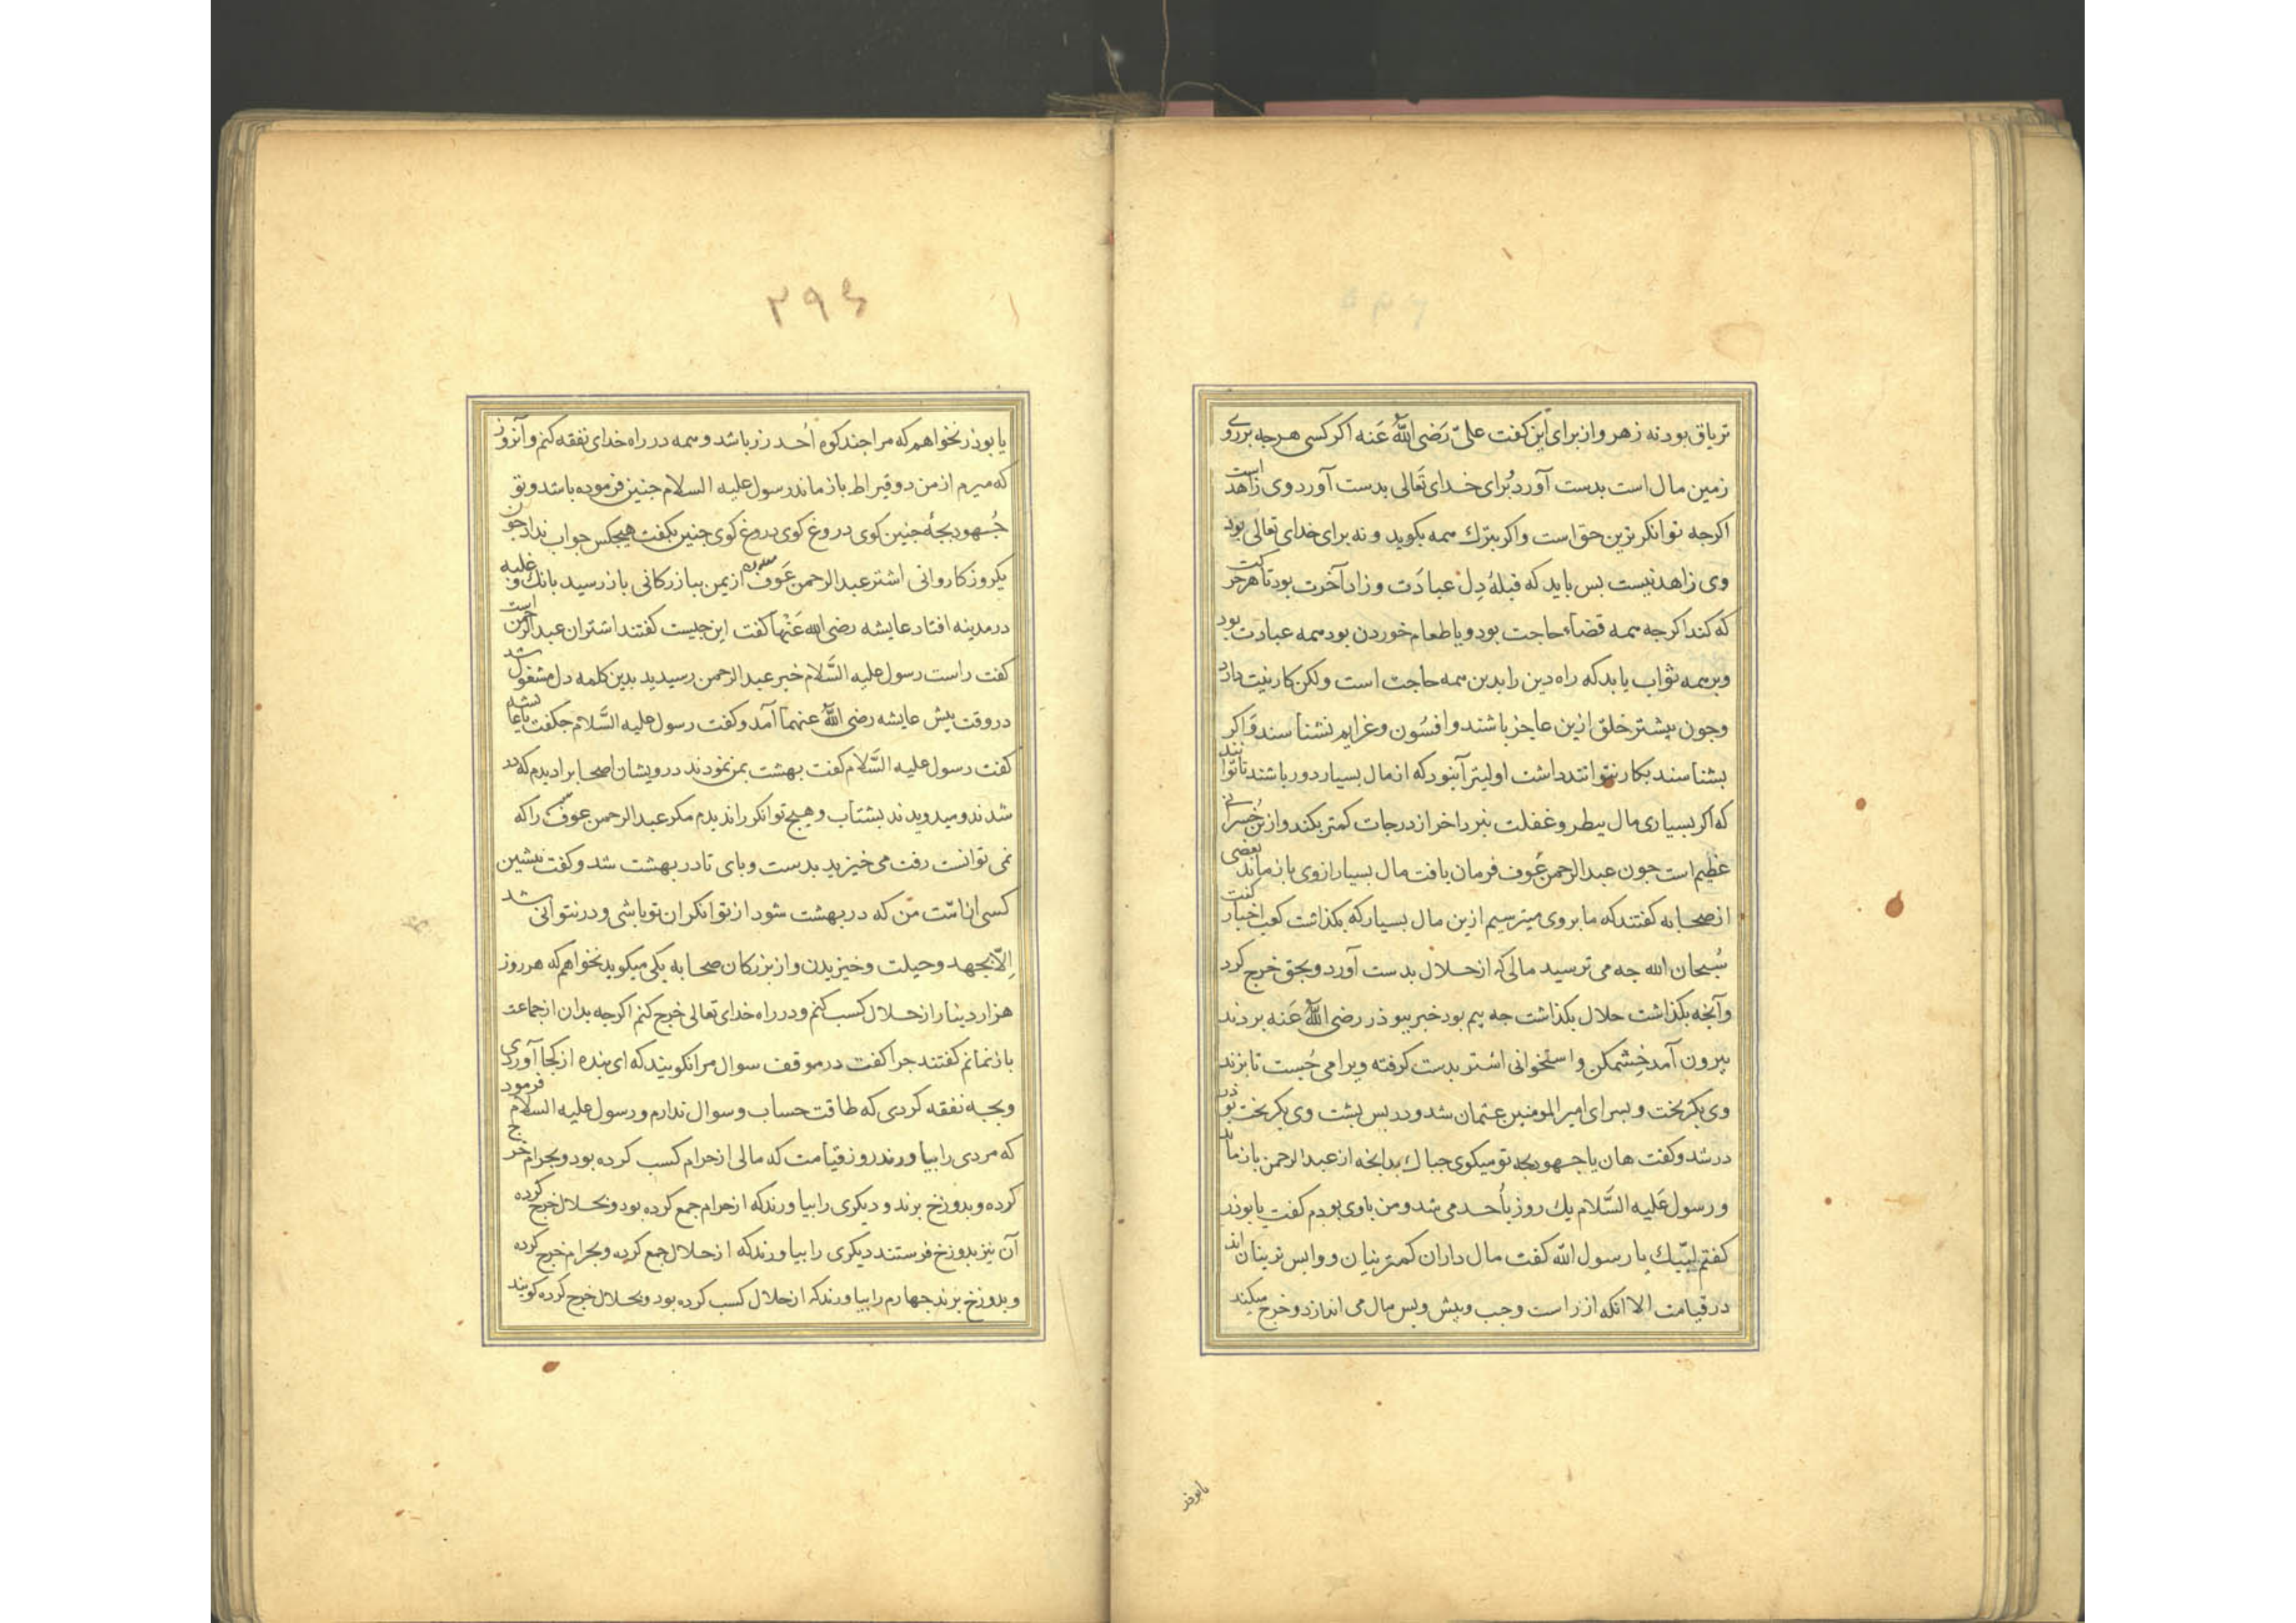 تریاق بود نه زهر و از برای این کفت علیّ رَضی اللّٰهُ عَنه اکر کسی هرجه بر روی
زمین مال است بدست آورد بُرای خدای تَعالی بدست آورد وی زاهد است
اکرجه توانکر ترین خلق است و اکر بترك همه بکوید و نه برای خدای تعالی بود
وی زاهد نیست بس باید که قبلهٔ دِل عبادَت و زاد آخرت بود تا هر حرکت
که کند اکرجه همه قضاء حاجت بود و یا طعام خوردن بود همه عبادت بود
و بر همه ثواب یابد که راه دین را بدین همه حاجت است ولکن کار نیت دارد
وجون بیشتر خلق ازین عاجز باشند و افسُون و عزایم نشناسند وَاکر
بشناسند بکار نتوانند داشت اولیتر آنبود که از مال بسیار دور باشند تا توانند
که اکر بسیاری مال بطر و غفلت نبرد اخر از درجات کمتر بکند و ازین خُسرانی
عَظیم است جون عبد الرحمن عَوف فرمان یافت مال بسیار از وی باز ماند بعضی
از صحابه کفتند که ما بر وی میترسیم ازین مال بسیار که بکذاشت کعب اخبار کفت
سُبحان الله جه می ترسید مالی که از حلال بدست آورد و بحق خرج کرد
وآنجه بکذاشت حلال بکذاشت جه بیم بود خبر ببوذر رضی اللّٰهُ عَنه بردند
بیرون آمد خِشمکن و استخوانی اشتر بدست کرفته ویرا می جُست تا بزند
وی بکریخت و بسرای امیر المومنین عثمان شد و در بس بشت وی بکریخت بوذر
در شد و کفت هان یا جهود بجه تو میکوی جه باك بدانجه از عبد الرحمن باز ماند
و رسول عَلیه السَّلام یك روز بأحد می شد و من باوی بودم کفت یا بوذر
کفتم لبّیك یا رسول اللّه کفت مال داران کمترینان و وابس ترینان اند
در قیامت الا انکه از راست و جب و بیش و بس مال می اندازد و خرج میکند
یابوذر
۲۹۶
یا بوذر نخواهم که مرا جند کوه اُحد زر باشد و همه در راه خدای نفقه کنم و آنروز
که میرم از من دو قیراط باز ماند رسول علیه السلام جنین فرموده باشد و تو
جُهود بجهٔ جنین کوی دروغ کوی دروغ کوی جنین بکفت هیجکس جواب نداد جون
یکروز کاروانی اشتر عبد الرحمن عَوف از یمن ببازرکانی باز رسید بانك و غلبه
در مدینه افتاد عایشه رضی الله عَنْها کفت این جیست کفتند اشتران عبد الرحمن است
کفت راست رسول علیه السَّلام خبر عبد الرحمن رسیدید بدین کلمه دل مشغول شد
در وقت بیش عایشه رضی اللّٰهُ عنهما آمد و کفت رسول علیه السَّلام جکفت یا عایشه
کفت رسول علیه السَّلام کفت بهشت بمن نمودند درویشان اصحابرا دیدم که در
شدند و میدویدند بشتاب و هیج توانکر را ندیدم مکر عبد الرحمن عوف را که
نمی توانست رفت می خیزید بدست و بای تا در بهشت شد و کفت بیشین
کسی از امّت من که در بهشت شود از توانکران تو باشی و در نتوانی شد
اِلّا بجهد و حیلت و خیزیدن و از بزرکان صحابه یکی میکوید نخواهم که هر روز
هزار دینار از حلال کسب کنم و در راه خدای تعالی خرج کنم اکرجه بدان از جماعت
باز نمانم کفتند جرا کفت در موقف سوال مرا نکویند که ای بنده از کجا آوردی
و بجه نفقه کردی که طاقت حساب و سوال ندارم و رسول علیه السلام فرمود
که مردی را بیاورند روز قیامت که مالی از حرام کسب کرده بود و بحرام خرج
کرده و بدوزخ برند و دیکری را بیاورند که از حرام جمع کرده بود و بحلال خرج کرده
آن نیز بدوزخ فرستند دیکری را بیاورند که از حلال جمع کرده و بحرام خرج کرده
و بدوزخ برند جهارم را بیاورند که از حلال کسب کرده بود و بحلال خرج کرده کویند